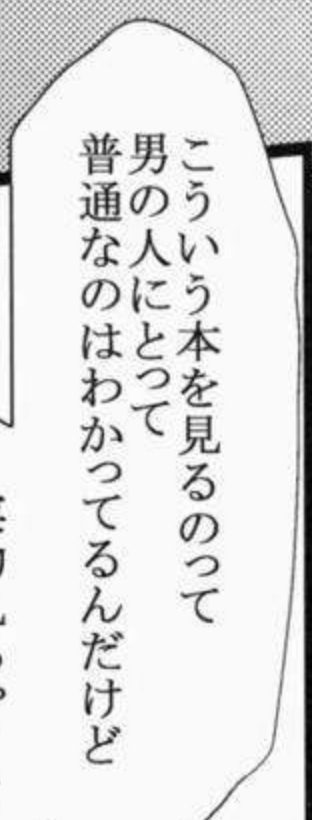 こういう本を見るのって
男の人にとって
普通なのはわかってるんだけど